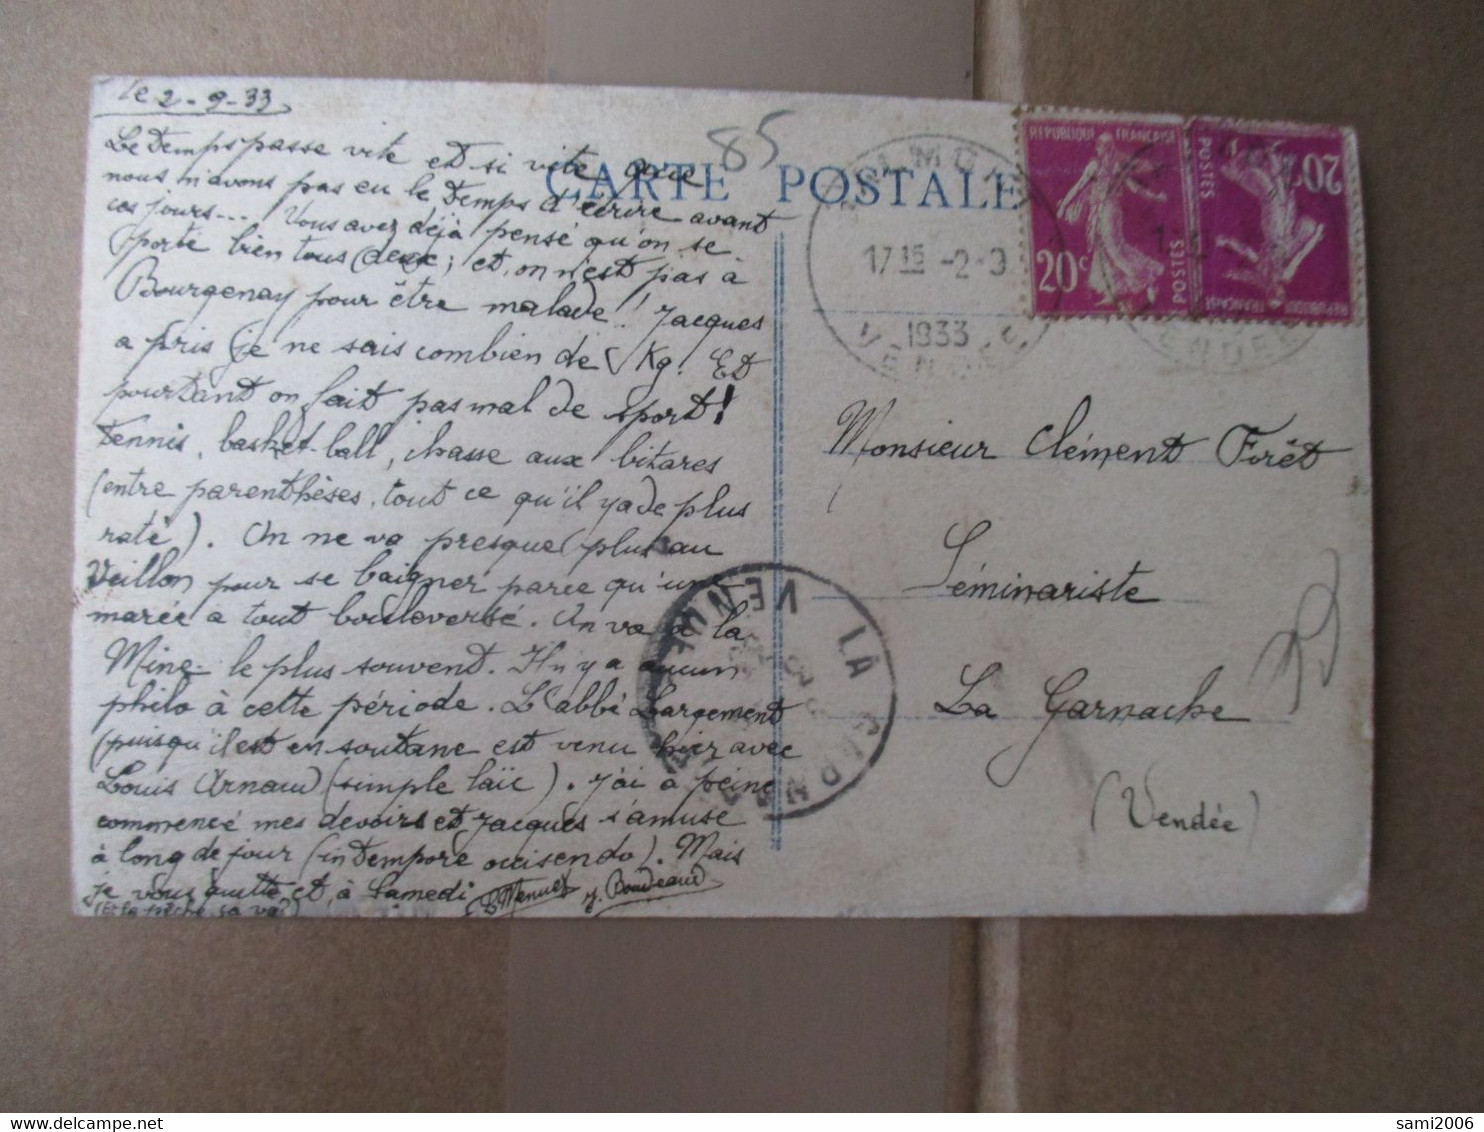 le 2-9-33
Le Temps passe vite et si vite que
nous n'avons pas eu le Temps d'écrire avant
ces jours... Vous avez déjà pensé qu'on se
porte bien tous deux; et, on n'est pas à
Bourgenay pour être malade! Jacques
a pris (je ne sais combien de) Kg! Et
pourtant on fait pas mal de sport!
Tennis, basket-ball, chasse aux bitares
(entre parenthèses, tout ce qu'il y a de plus
raté). On ne va presque plus au
Veillon pour se baigner parce qu'une
marée a tout bouleversé. On va à la
Mine le plus souvent. Il n'y a aucun
philo à cette période. L'abbé Largement
(puisqu'il est en soutane est venu hier avec
Louis Arnaud (simple laïc). J'ai à peine
commencé mes devoirs et Jacques s'amuse
à long de jour (in Tempore occisendo). Mais
je vous quitte et, à Samedi
J. Boudeaud
(Et la pêche, ça va?)
85
CARTE POSTALE
17 15 -2-9
1933
VENDÉE
RÉPUBLIQUE FRANÇAISE
20c
POSTES
RÉPUBLIQUE FRANÇAISE
20c
POSTES
Monsieur Clément Forêt
Séminariste
La Garnache
(Vendée)
LA GARNACHE
VENDÉE
sami2006